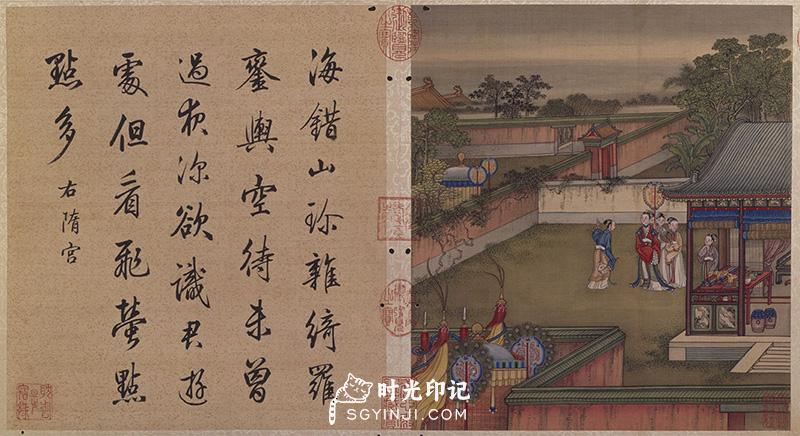 海錯山珍雜綺羅
鑾輿空待未曾
過夜深欲識君遊
處但看飛螢點
點多 右隋宮
时光印记
SGYINJI.COM